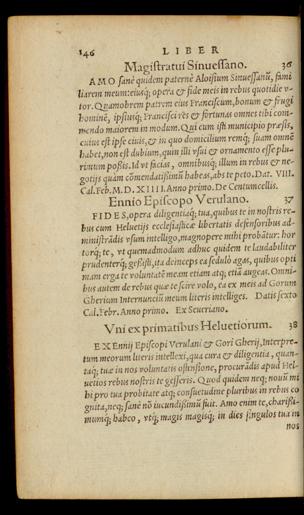 146 LIBER
Magistratui Sinuessano. 36
AMO sanè quidem paternè Aloisium Sinuessanũ, fami
liarem meum: eiusq; opera & fide meis in rebus quotidie v-
tor. Quamobrem patrem eius Franciscum, bonum & frugi
hominẽ, ipsiusq; Francisci res & fortunas omnes tibi com-
mendo maiorem in modum. Qui cum isti municipio præsis,
cuius est ipse ciuis, & in quo domicilium remq; suam omnẽ
habet, non est dubium, quin illi vsui & ornamento esse plu-
rimum possis. Id vt facias, omnibusq; illum in rebus & ne-
gotijs quàm cõmendatissimũ habeas, abs te peto. Dat. VIII.
Cal. Feb. M. D. XIIII. Anno primo. De Centumcellis.
Ennio Episcopo Verulano. 37
FIDES, opera diligentiaq; tua, quibus te in nostris re-
bus cum Heluetijs ecclesiasticæ libertatis defensoribus ad-
ministrãdis vsum intelligo, magnopere mihi probãtur: hor
torq; te, vt quemadmodum adhuc quidem te laudabiliter
prudenterq; gessisti, ita deinceps ea sedulò agas, quibus opti
mam erga te voluntatẽ meam etiam atq; etiã augeas. Omni-
bus autem de rebus quæ te scire volo, ea ex meis ad Gorum
Gherium Internuncium meum literis intelliges. Datis sexto
Cal. Febr. Anno primo. Ex Seueriano.
Vni ex primatibus Heluetiorum. 38
EX Ennij Episcopi Verulani & Gori Gherij, Interpre-
tum meorum literis intellexi, qua cura & diligentia, quan-
taq; tua in nos voluntatis ostensione, procurãdis apud Hel-
uetios rebus nostris te gesseris. Quod quidem neq; nouũ mi
hi pro tua probitate atq; consuetudine pluribus in rebus co
gnita, neq; sanè nõ iucundissimũ fuit. Amo enim te, charissi-
mumq; habeo, vtq; magis magisq; in dies singulos tua in
nos